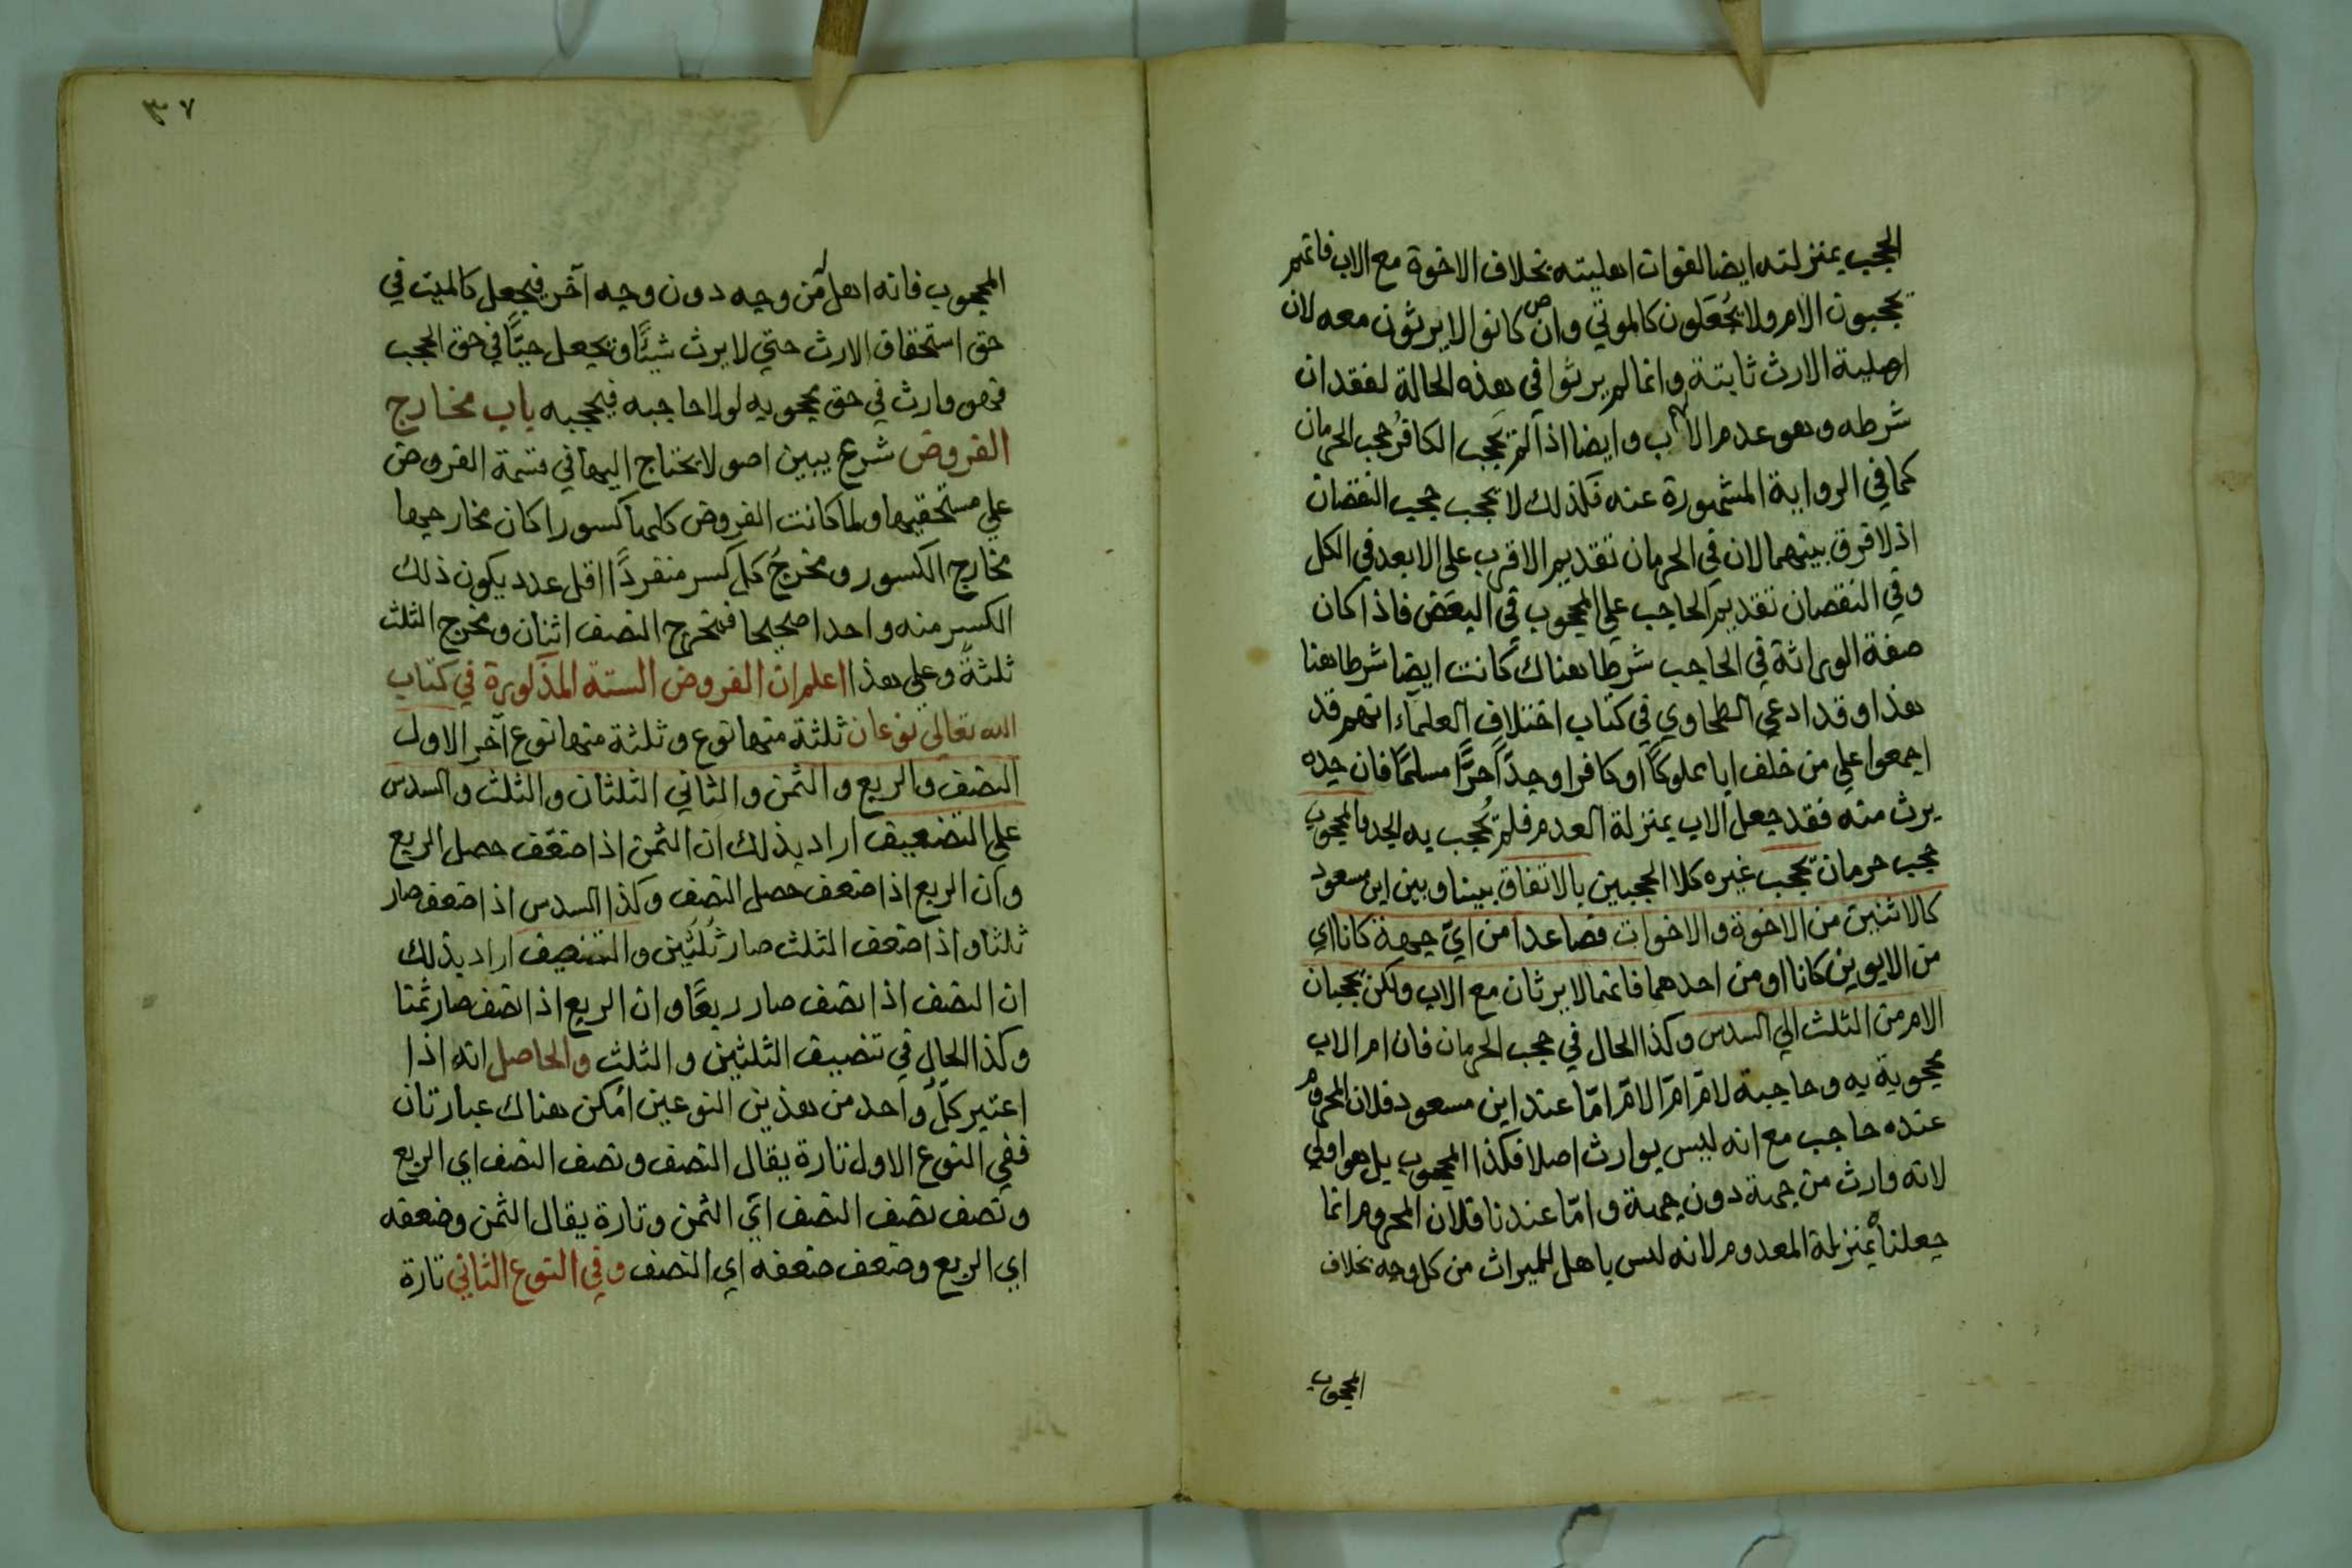 الحجب بمنزلته ايضا لفوات اهليته بخلاف الاخوة مع الاب فانهم
يحجبون الام ولا يُجعَلون كالموتي وان كانوا لا يرثون معه لان
اهلية الارث ثابتة وانما لم يرثوا في هذه الحالة لفقدان
شرطه وهو عدم الاب وايضا اذا لم يَحجب الكافرُ حجب الحرمان
كما في الرواية المشهورة عنه فكذلك لا يحجب حجب النقصان
اذ لا فرق بينهما لان في الحرمان تقديم الاقرب على الابعد في الكل
وفي النقصان تقديم الحاجب علي المحجوب في البعَض فاذا كان
صفة الوراثة في الحاجب شرطا هناك كانت ايضا شرطا هنا
هذا وقد ادعي الطحاوي في كتاب اختلاف العلماء انهم قد
اجمعوا علي من خلف ابا مملوكًا او كافرا وجدًّا حرًّا مسلمًا فان جده
يرث منه فقد جعل الاب بمنزلة العدم فلم يُحجب به الجد والمحجوب
حجب حرمان يحجب غيره كلا الحجبين بالاتفاق بيننا وبين ابن مسعود
كالاثنين من الاخوة والاخوات فصاعدا من ايّ جهة كانا اي
من الابوين كانا او من احدهما فانهما لا يرثان مع الاب ولكن يحجبان
الام من الثلث الي السدس وكذا الحال في حجب الحرمان فان ام الاب
محجوبة به وحاجبة لامّ امّ الامّ امّا عند ابن مسعود فلان المحروم
عنده حاجب مع انه ليس بوارث اصلا فكذا المحجوب بل هو اولي
لانه وارث من جهة دون جهة وامّا عندنا فلان المحروم انما
جعلناه بمنزلة المعدوم لانه ليس باهل للميراث من كل وجه بخلاف
المحجوب
٣٧
المحجوب فانه اهل من وجه دون وجه آخر فيجعل كالميت في
حق استحقاق الارث حتي لا يرث شيئًا ويجعل حيًّا في حق الحجب
فهو وارث في حق محجوبه لولا حاجبه فيحجبه باب مخارج
الفروض شرع يبين اصولا يحتاج اليها في قسمة الفروض
علي مستحقيها ولما كانت الفروض كلها كسورا كان مخارجها
مخارج الكسور ومخرجُ كل كسر منفردًا اقل عدد يكون ذلك
الكسر منه واحدا صحيحا فمخرج النصف اثنان ومخرج الثلث
ثلثةً وعلي هذا اعلم ان الفروض الستة المذكورة في كتاب
الله تعالي نوعان ثلثة منها نوع وثلثة منها نوع آخر الاول
النصف والربع والثمن والثاني الثلثان والثلث والسدس
علي التضعيف اراد بذلك ان الثمن اذا ضعّف حصل الربع
وان الربع اذا ضعف حصل النصف وكذا السدس اذا ضعف صار
ثلثا واذا ضعف الثلث صار ثُلُثَين والتنصيف اراد بذلك
ان النصف اذا نصف صار ربعًا وان الربع اذا نصف صار ثمنا
وكذا الحال في تنصيف الثلثين والثلث والحاصل انه اذا
اعتبر كلّ واحد من هذين النوعين امكن هناك عبارتان
ففي النوع الاول تارة يقال النصف ونصف النصف اي الربع
ونصف نصف النصف اي الثمن وتارة يقال الثمن وضعفه
اي الربع وضعف ضعفه اي النصف وفي النوع الثاني تارة